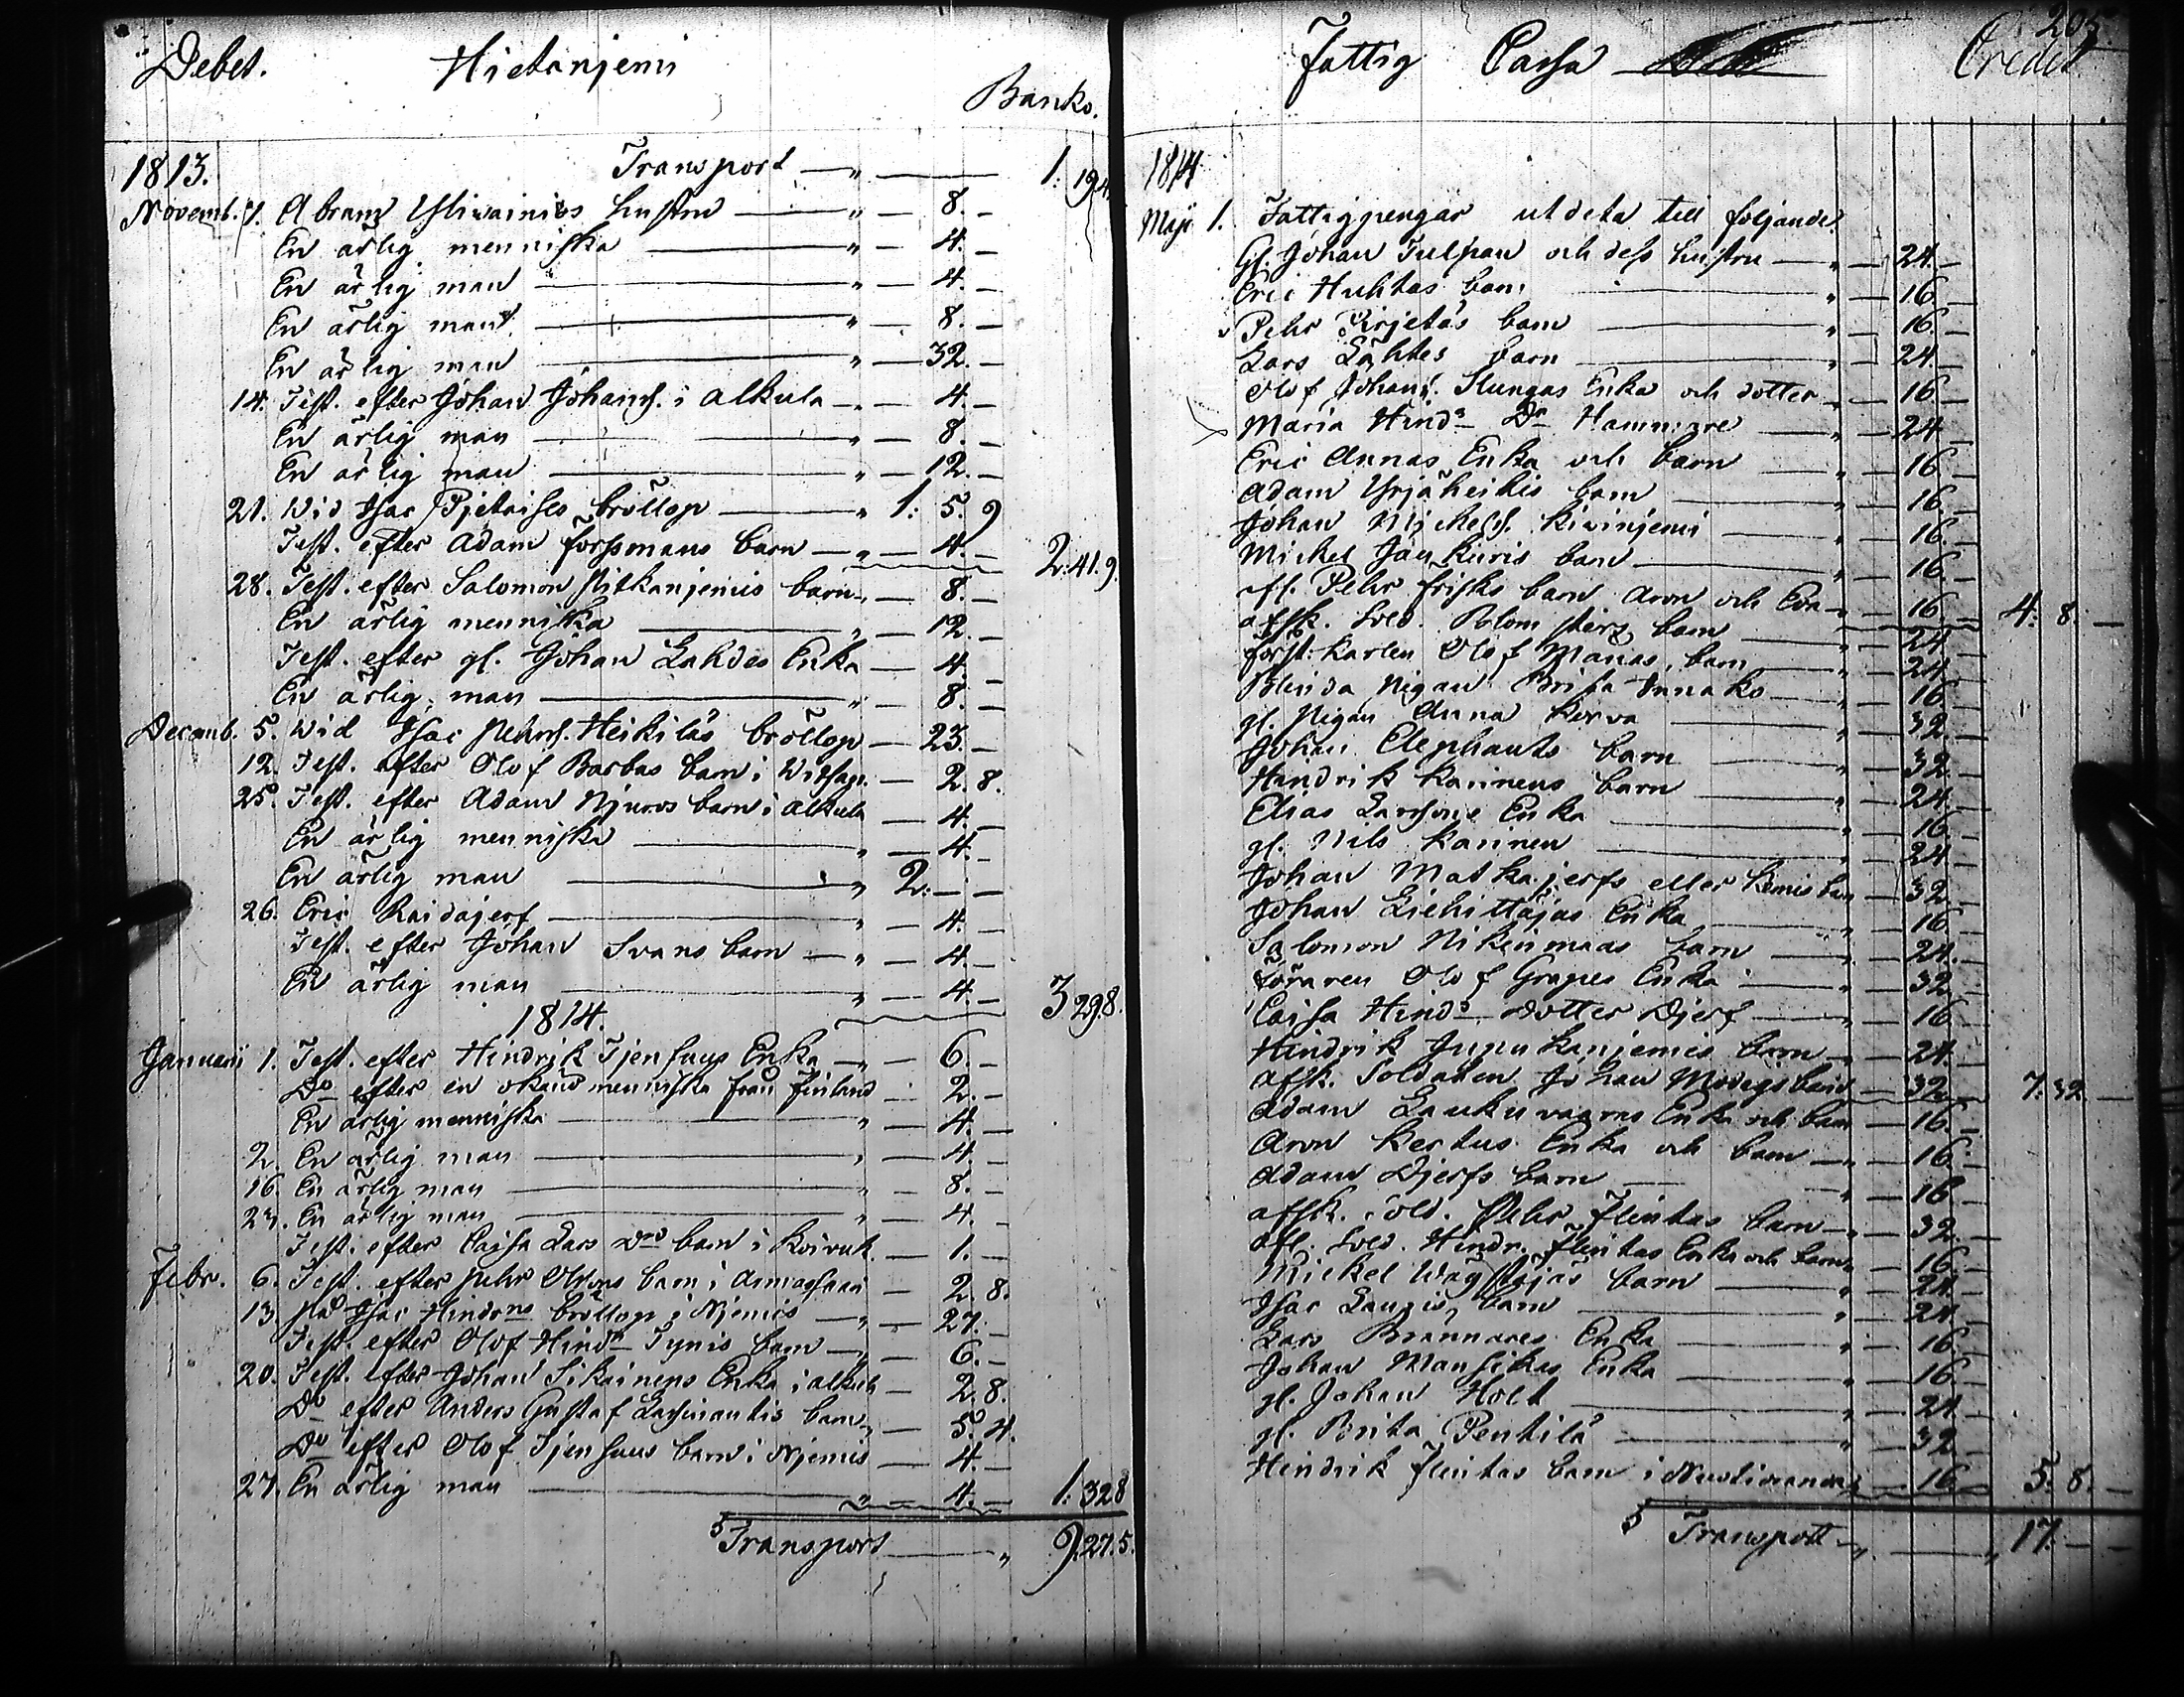 Debet. Hietanjemi
Banko.
1813. Transport — " — 1: 19 4.
Novemb. 7. Abram Yliwainios hustru — " — 8. —
En ärlig menniska — " — 4. —
En ärlig man — " — 4. —
En ärlig man — " — 8. —
En ärlig man — 32. —
14. Test. efter Johan Johans. i Alkula — 4. —
En ärlig man — " — 8. —
En ärlig man — " — 12. —
21. Wid Isac Pietarises bröllop — " 1: 5. 9
Test. efter Adam Forssmans barn — " — 4. — 2: 41. 9.
28. Test. efter Salomon Pitkänjemis barn — 8. —
En ärlig menniska — " — 12. —
Test. efter gl. Johan Lahdes Enka — 4. —
En ärlig man — " — 8. —
Decemb. 5. Wid Isac Pehrs. Heikiläs bröllop — 23. —
12. Test. efter Olof Barbas barn i — 2. 8.
25. Test. efter Adam Njuros barn i Alkula — 4. —
En ärlig menniska — " — 4. —
En ärlig man — " 2. — —
26. Eric Raidajerf — " — 4. —
Test. efter Johan Svans barn — " — 4. —
En ärlig man — " — 4. — 3 29 8.
1814.
Januarii 1. Test. efter Hindrik Tjenhuus Enka — " — 6. —
Do efter en okänd menniska från Finland — 2. —
En ärlig menniska — " — 4. —
2. En ärlig man — " — 4. —
16. En ärlig man — " — 8. —
23. En ärlig man — " — 4. —
Test. efter Caisa Lars Drs barn i Koivuk. — 1. —
Febr. 6. Test. efter Pehr Olofs barn i Armasaari — 2. 8.
13 på Isac Hindrns bröllop i Njemis — " — 27. —
Test. efter Olof Hindrn Tynis barn — " — 6. —
20. Test. efter Johan Sikainens Enka i Alkula — 2. 8.
Do efter Anders Gustaf Lassinantis barn — 5. 4.
Do efter Olof Tjenhuus barn i Njemis — 4. —
27. En ärlig man — " — 4. — 1: 32 8
Transport — " 9. 27. 5.
Fattig Cassa 205 Credit
1814
Maji 1. Fattigpengar utdeta till följande
Gl. Johan Tulpan och dess hustru — " — 24. —
Eric Huhtas barn — " — 16. —
Pehr Kirjetäs barn — " — 16. —
Lars Lahtes barn — " — 24. —
Olof Johans. Slungas Enka och dotter — " — 16. —
Maria Hindrs Dr Hammare — " — 24. —
Eric Annas Enka och barn — " — 16. —
Adam Yrjäheikis barn — " — 16. —
Johan Michels. Kivinjemi — " — 16. —
Mickel Jaukuris barn — " — 16. —
afl. Pehr Frisks barn Aron och Eva — " — 16. — 4: 8. —
afsk. Sold. Blomsterz barn — " — 24. —
Förste Karlen Olof Manas barn — " — 24. —
Blinda Pigan Brita Innako — 16. —
gl. Pigan Anna Korva — " — 32. —
Johan Elephants barn — " — 32. —
Hindrik Kannens barn — " — 24. —
Elias Larssons Enka — " — 16. —
gl. Nils Kaninen — " — 24. —
Johan Matkajerfs eller Kemis barn — 32. —
Johan Liehittäjas Enka — " — 16. —
Salomon Nikenmaas barn — " — 24. —
Föraren Olof Grapes Enka — " — 32. —
Caisa Hinds dotter Djerf — " — 16. —
Hindrik Junukanjemis barn — 24. —
Afsk. Soldaten Johan Modigs barn — 32. — 7: 32. —
Adam Laukuvaaras Enka och barn — 16. —
Aron Kertus Enka och barn — " — 16. —
Adam Djerfs barn — " — 16 —
afsk. sold. Pehr Flintas barn — " — 32. —
afl. Sold. Hindr. Flintas Enka och barn — 16. —
Mickel Wägstöjas barn — " — 24. —
Isac Lauris barn — " — 24. —
Lars Brännares Enka — " — 16. —
Johan Mansikas Enka — " — 16. —
gl. Johan Hold — " — 24. —
gl. Brita Pentilä — " — 32. —
Hindrik Flintas barn i — " — 16. — 5: 8. —
Transport — " — " 17. — —